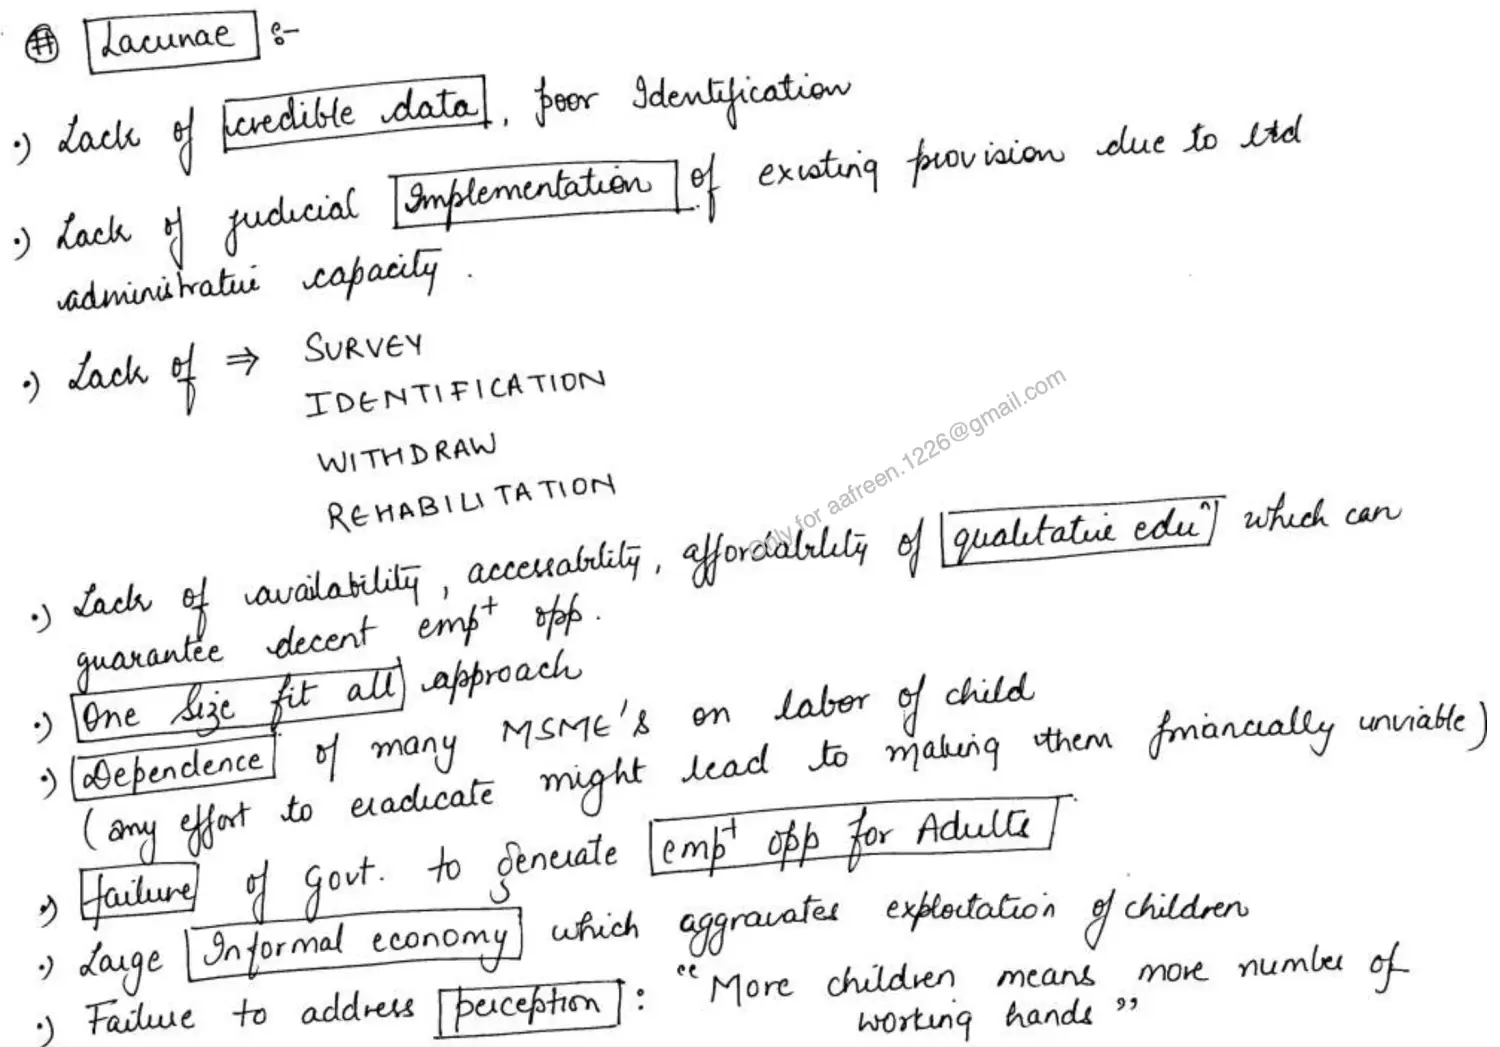 # Lacunae :-
•) Lack of credible data, poor Identification
•) Lack of judicial Implementation of existing provision due to ltd
administrative capacity.
•) Lack of ⇒ SURVEY
IDENTIFICATION
WITHDRAW
REHABILITATION
Only for aafreen.1226@gmail.com
•) Lack of availability, accessability, affordability of qualitative edu^n which can
guarantee decent emp^t opp.
•) One Size fit all approach
•) Dependence of many MSME's on labor of child
(any effort to eradicate might lead to making them financially unviable)
•) failure of govt. to generate emp^t opp for Adults
•) Large Informal economy which aggravates exploitation of children
•) Failure to address perception : "More children means more number of
working hands"